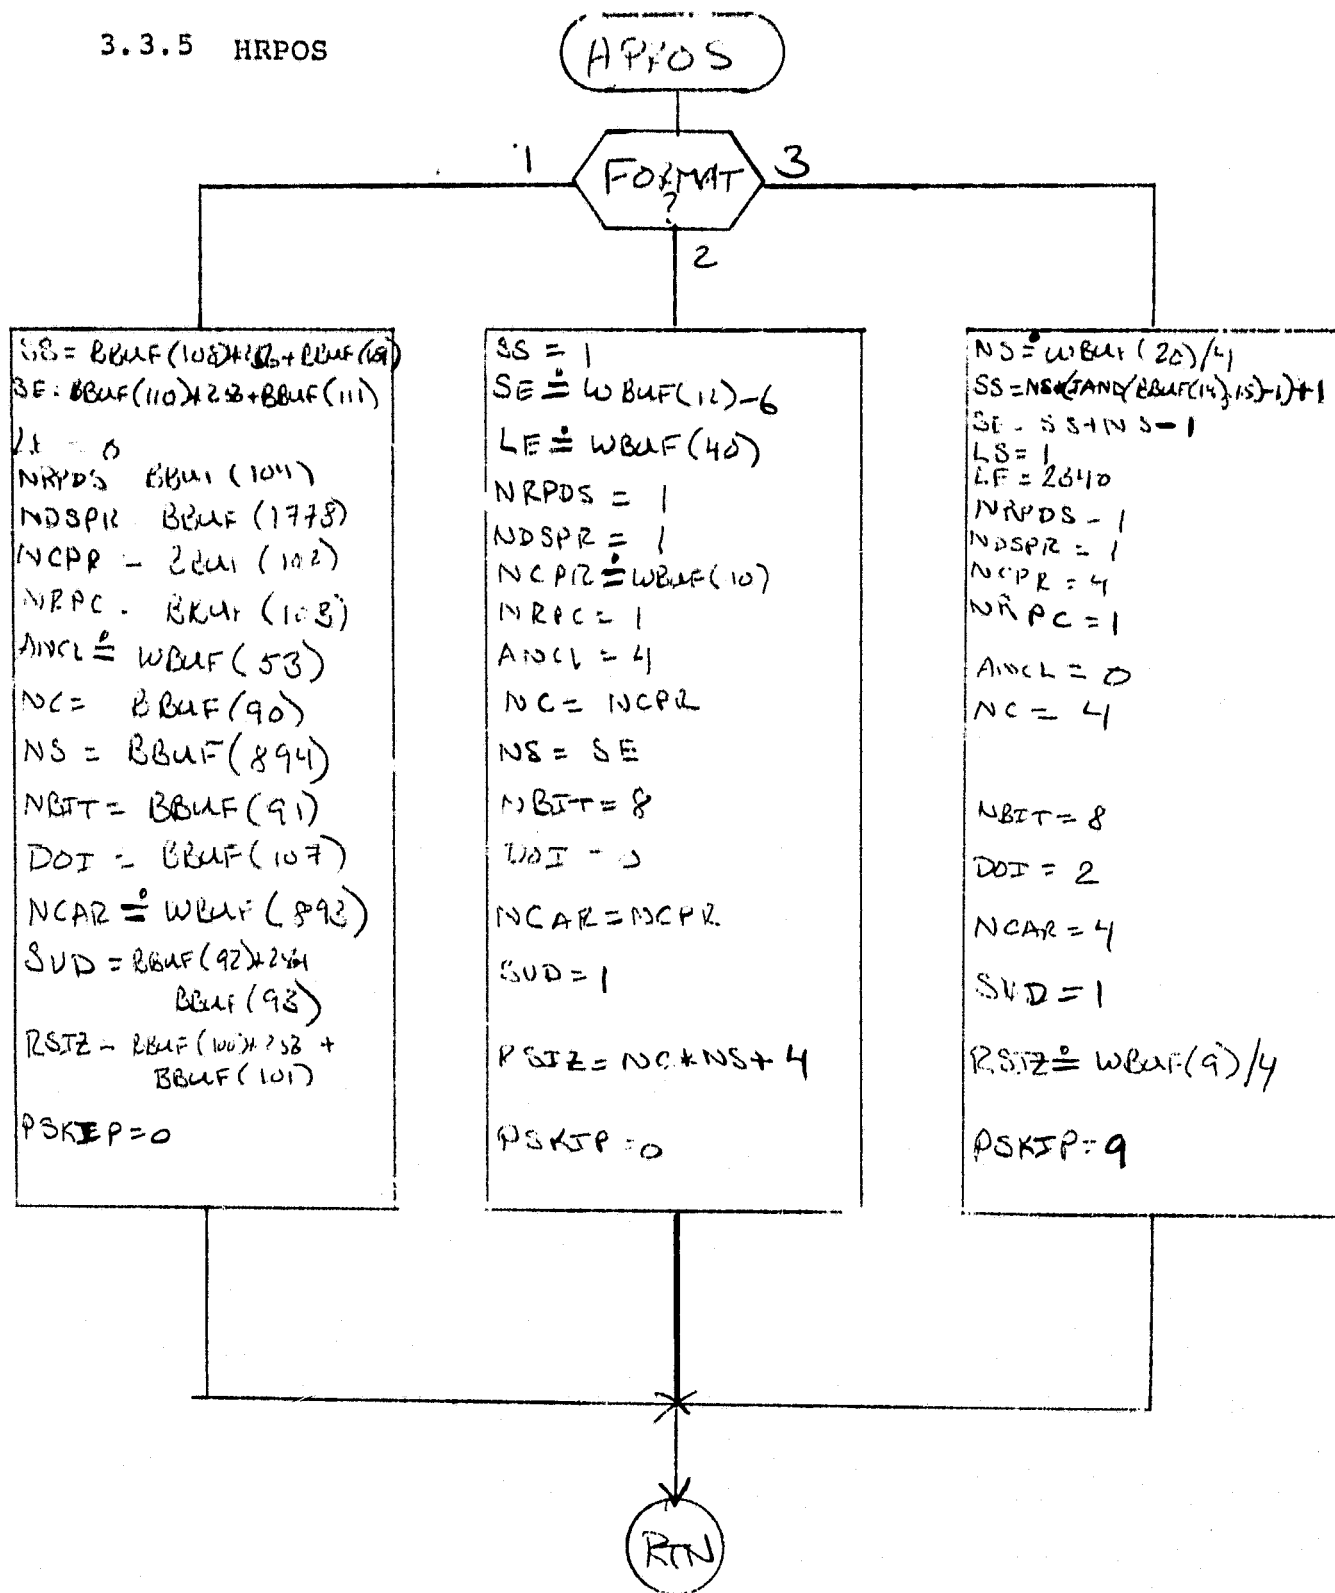 3.3.5 HRPOS
FORMAT
?
1
3
2
SE = BBUF(110)*256+BBUF(111)
NRPDS BBUF (104)
NDSPR BBUF (1778)
NCPR = BBUF (102)
NRPC = BBUF (103)
ANCL ≐ WBUF (53)
NC = BBUF (90)
NS = BBUF (894)
NBIT = BBUF (91)
DOI = BBUF (107)
NCAR ≐ WBUF (893)
SVD = BBUF (92)*256+
BBUF (93)
RSIZ = BBUF (100)*256 +
BBUF (101)
PSKIP = 0
SS = 1
SE ≐ WBUF(12)-6
LE ≐ WBUF (40)
NRPDS = 1
NDSPR = 1
NCPR ≐ WBUF(10)
NRPC = 1
ANCL = 4
NC = NCPR
NS = SE
NBIT = 8
DOI =
NCAR = NCPR
SVD = 1
RSIZ = NC*NS+4
PSKIP = 0
NS ≐ WBUF (20)/4
SS = NS*(IAND(BBUF(14),15)-1)+1
SE = SS+NS-1
LS = 1
LE = 2340
NRPDS = 1
NDSPR = 1
NCPR = 4
NRPC = 1
ANCL = 0
NC = 4
NBIT = 8
DOI = 2
NCAR = 4
SVD = 1
RSIZ ≐ WBUF(9)/4
PSKIP = 9
RTN